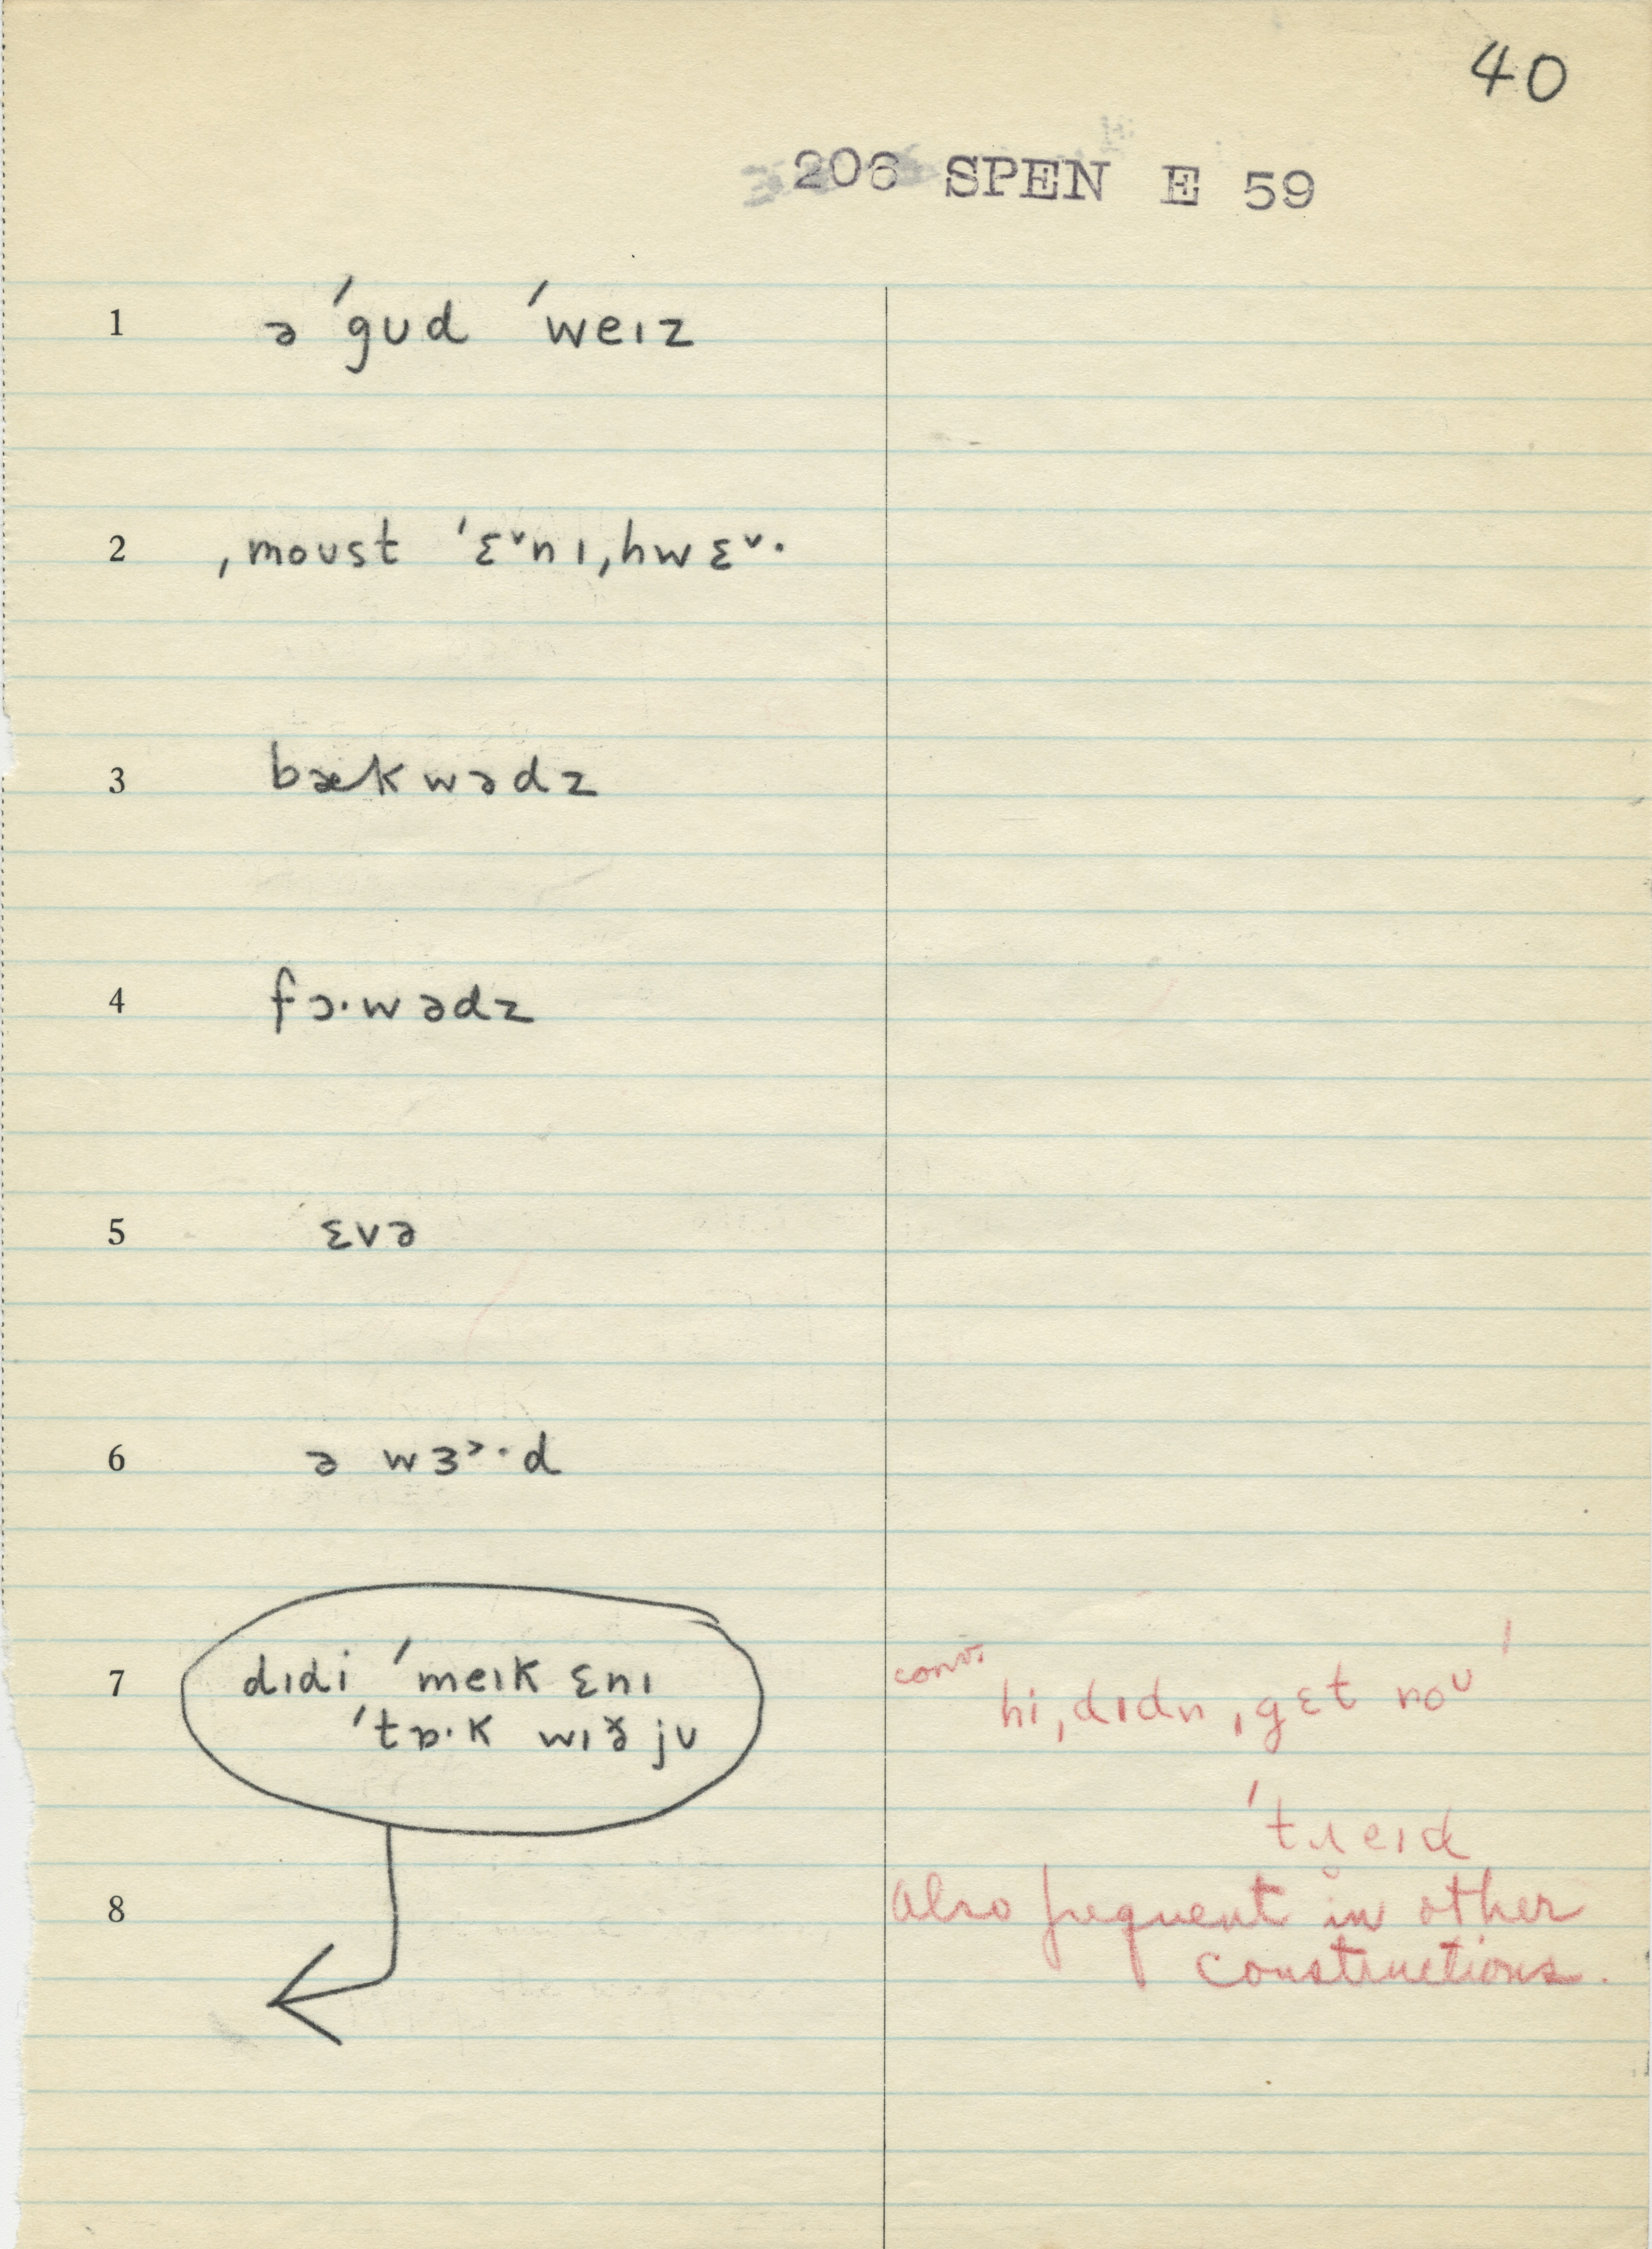 40
206 SPEN E 59
1 ə ˈgʊd ˈweɪz
2 ˌmoʊst ˈɛ˅nɪˌhwɛ˅·
3 bækwədz
4 fɔ·wədz
5 ɛvə
6 ə wɜ˃·d
7 dɪdi ˈmeɪk ɛnɪ
ˈtɒ·k wɪð̆ jʊ
conv. hiˌdɪdn ˌgɛt noʊ
ˈtɹ̯eɪd
8 Also frequent in other
constructions.